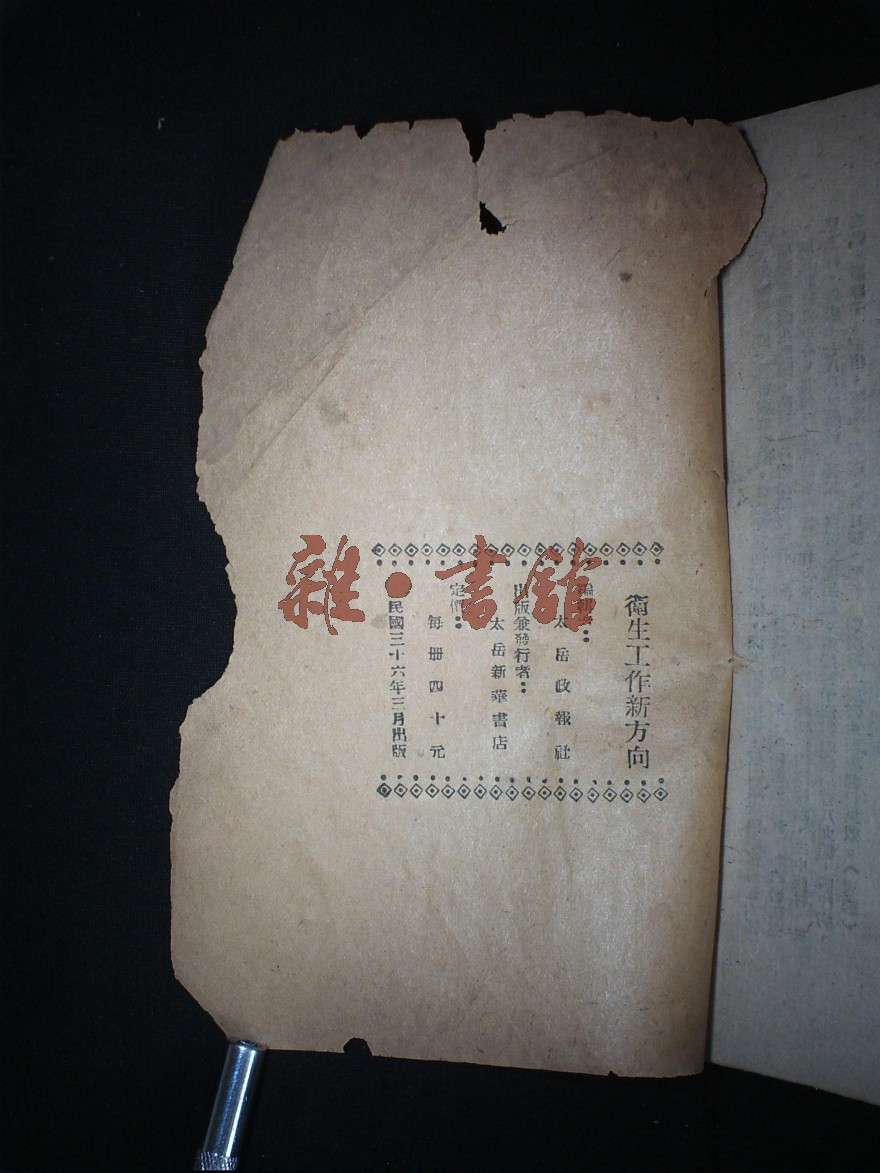 衛生工作新方向
編輯者：
太岳政報社
出版兼發行者：
太岳新華書店
定價：
每冊四十元
民國三十六年三月出版
雜·書舘